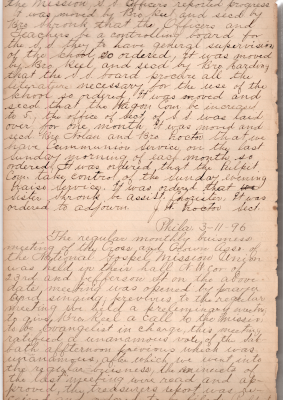 the Mission, S.S Officers reported progress
It was moved by Bro Riel and secd by
Bro that the Officers and
Teachers be a controlling board for
the S.S. they to have general supervision
of the school, so ordered, It was moved
by Bro Riel and secd by Bro Harding
that the S.S. board procure all the
literature necessary for the use of the
school. so ordered, It was moved and
secd that the Wagon Com be increased
to 5, the office of Sect of S.S was laid
over for one month It was moved and
secd Bro and Bro Proctor that we
have Communion Service on the last
Sunday morning of each month, so
ordered, It was ordered that the Pulpit
Com take control of the Sunday evening
Praise service, It was ordered that
Sister Shronk be assist Chorister, It was
ordered to adjourn. J H Proctor Sect
Phila 3-11-96
The regular monthly business
meeting of the Cross and Crown Class of
the National Gospel Mission Union
was held in their hall N.W Cor of
23rd and Jefferson st on the above
date, meeting was opened by prayer
and singing, previous to the regular
meeting we held a preliminary meeting
to give Bro Riel a call to the Mission
to be Evangelist in charge, this meeting
ratified a unanamous vote of the Sab
bath afternoon previous which was
unanamous, after which we went into
the regular business, the minutes of
the last meeting were read and ap
proved, the treasurers report was giv